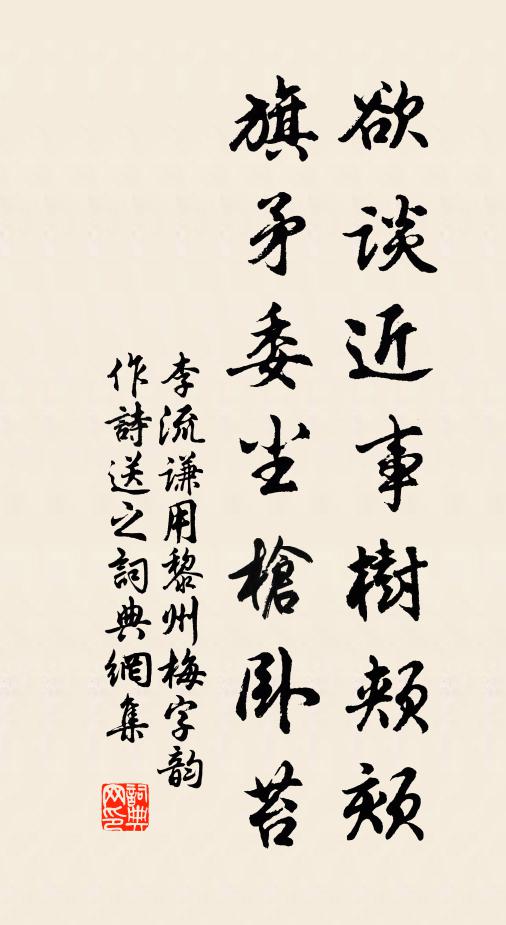 欲谈近事樹颊颏
旗矛委尘槍卧苔
李流谦用黎州梅字韵
作詩送之詞典網集
詞典网印